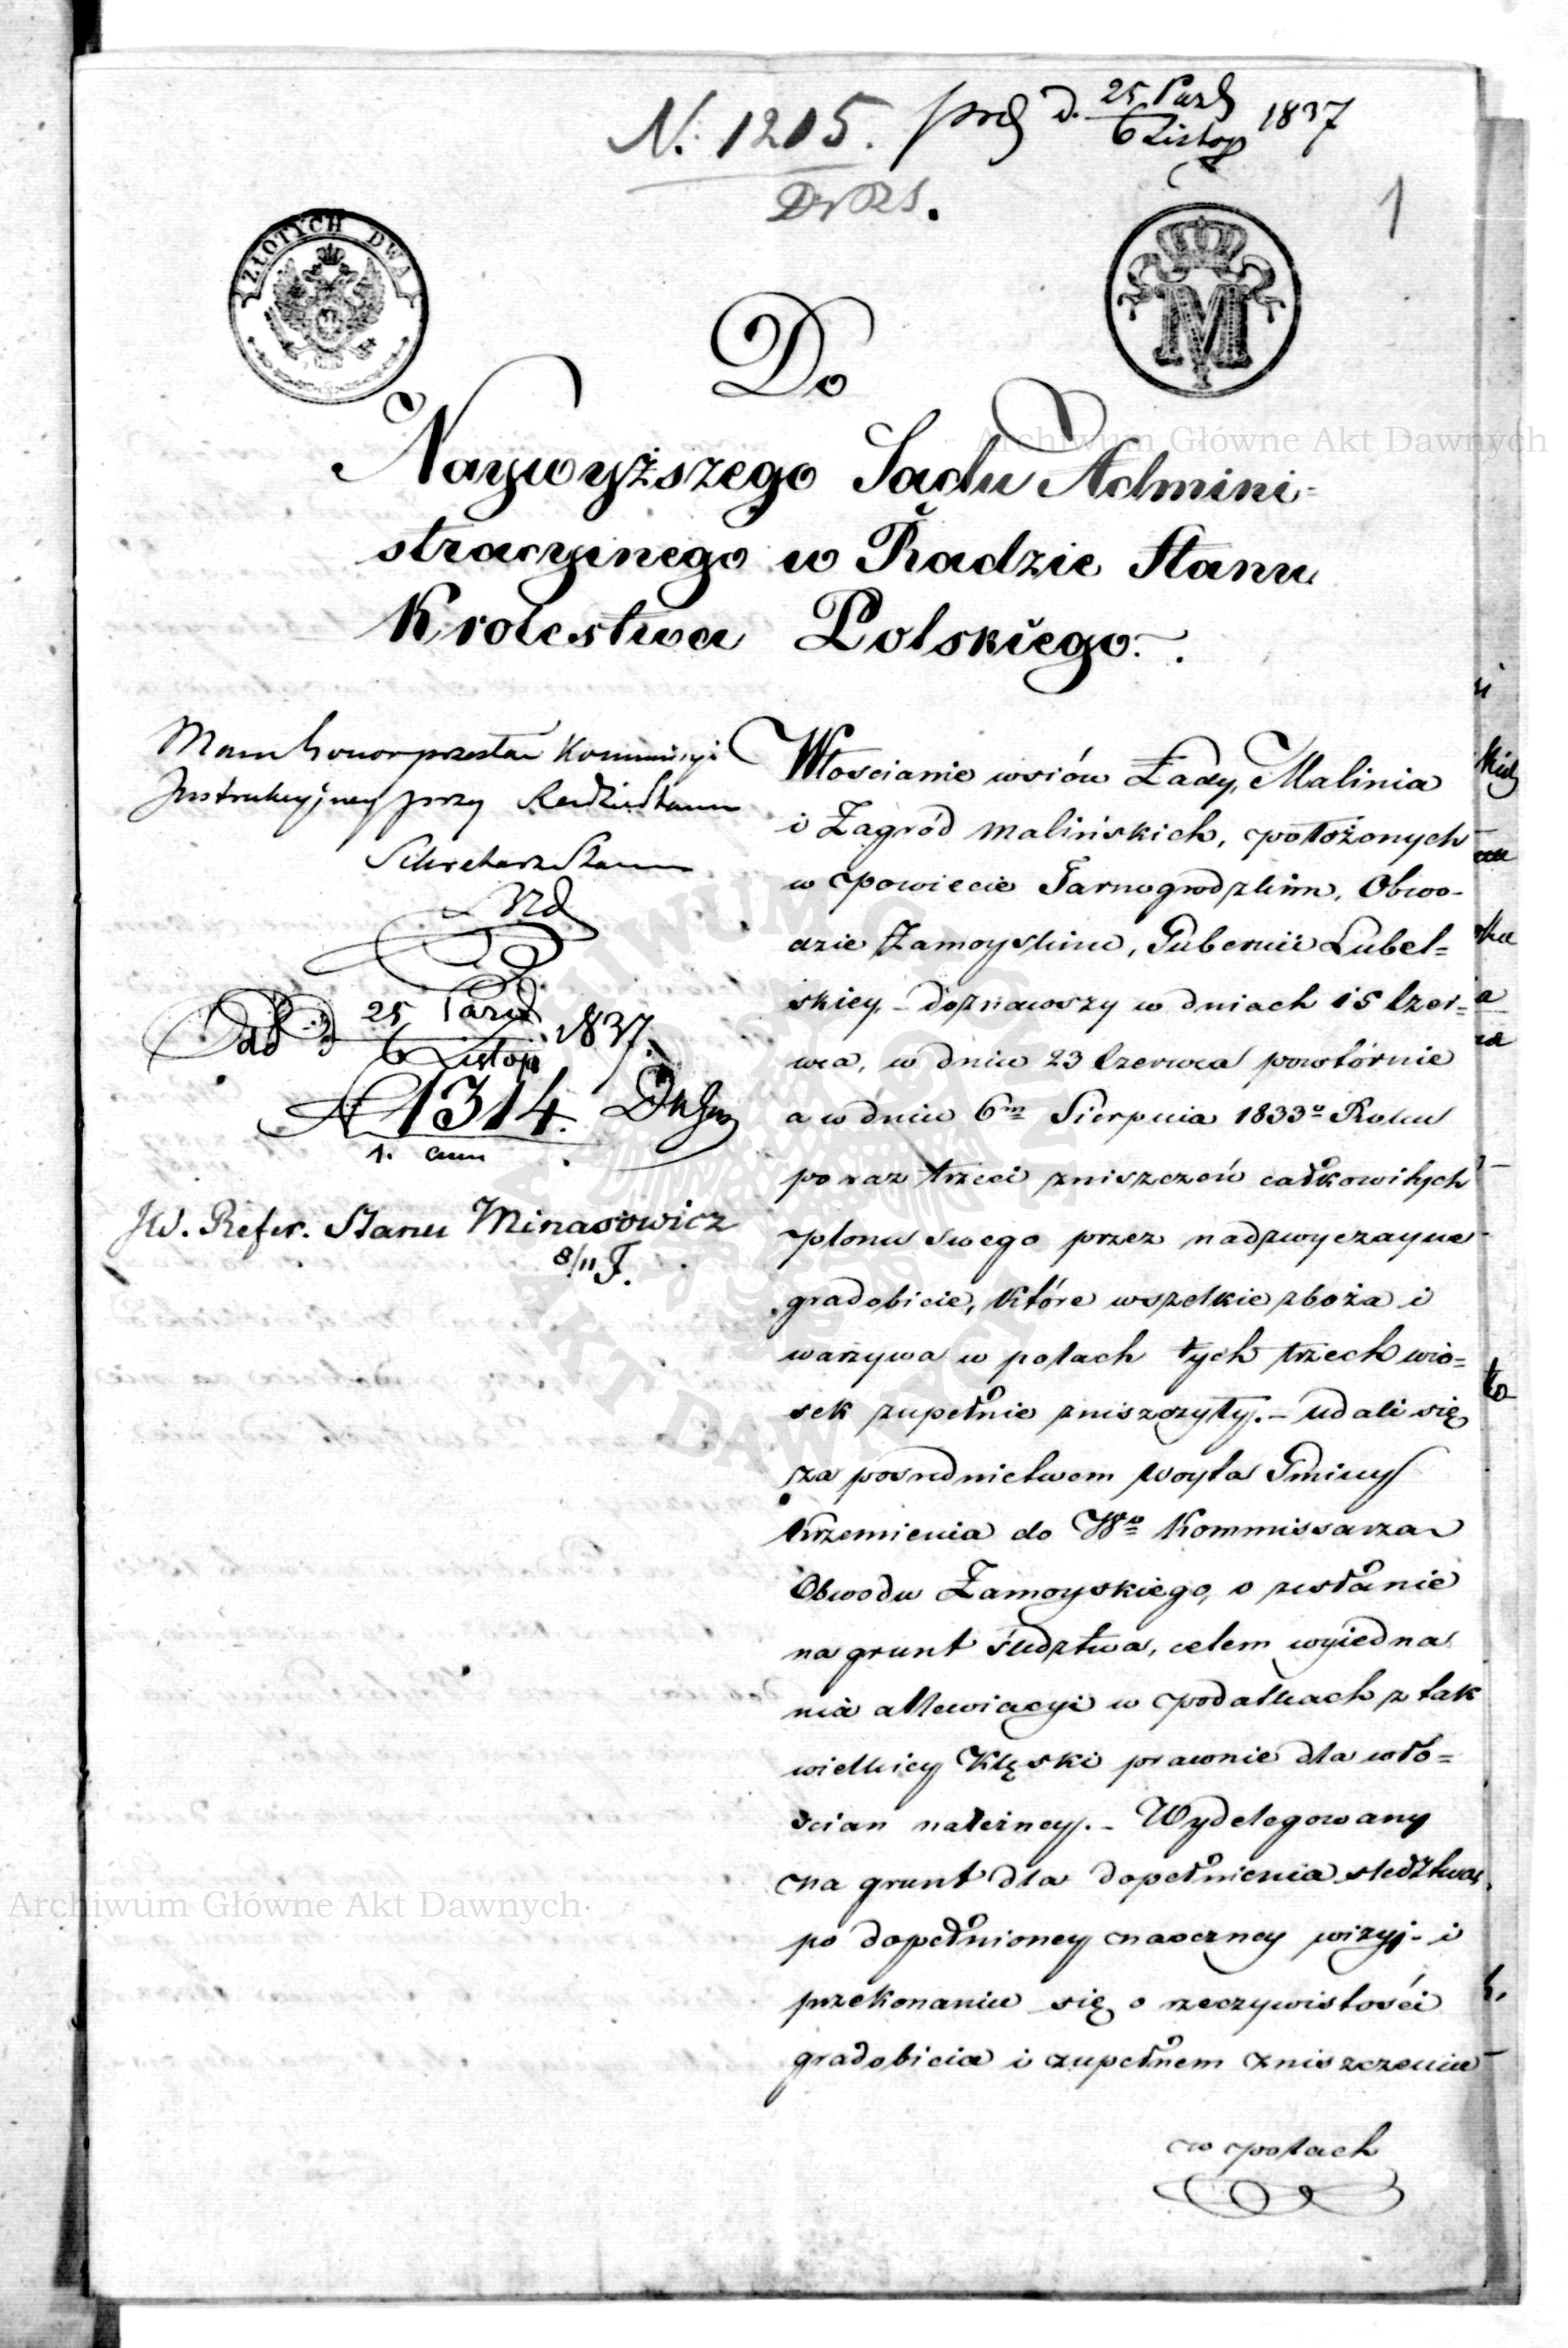 N. 1215. prd d. 25 Pazd 1837
6 Listop
DrRS.
1
ZŁOTYCH DWA
M
Do
Naywyższego Sądu Admini=
stracyinego w Radzie Stanu
Krolestwa Polskiego.
Mam honor przesłać Kommissyi
Instrukcyjney przy Radzie Stanu
Sekretarz Stanu
Odd d 25 Pazd 1837.
6 Listop
N 1314.
JW. Refer. Stanu Minasowicz
8/11 F.
Włoscianie wsiów Łady, Malinia
i Zagród malińskich, położonych
w powiecie Tarnogrodzkim, Obwo-
dzie Zamoyskim, Gubernii Lubel=
skiey, - doznawszy w dniach 15 Czer=
wca, w dniu 23 Czerwca powtórnie
a w dniu 6m Sierpnia 1833o Roku
po raz trzeci zniszczeń całkowitych
plonu swego przez nadzwyczayne
gradobicie, które wszelkie zboża i
warzywa w polach tych trzech wio=
sek zupełnie zniszczyły. - udali się
za posrednictwem Woyta Gminy
Krzemienia do Wo Kommissarza
Obwodu Zamoyskiego, o zesłanie
na grunt śledztwa, celem wyiedna
nia allewiacyi w podatkach z tak
wielkiey Klęski prawnie dla wło=
scian należney. - Wydelegowany
na grunt dla dopełnienia sledztwa,
po dopełnioney naoczney wizyi - i
przekonaniu się o rzeczywistości
gradobicia i zupełnem zniszczeniu
w polach
Archiwum Główne Akt Dawnych
Archiwum Główne Akt Dawnych